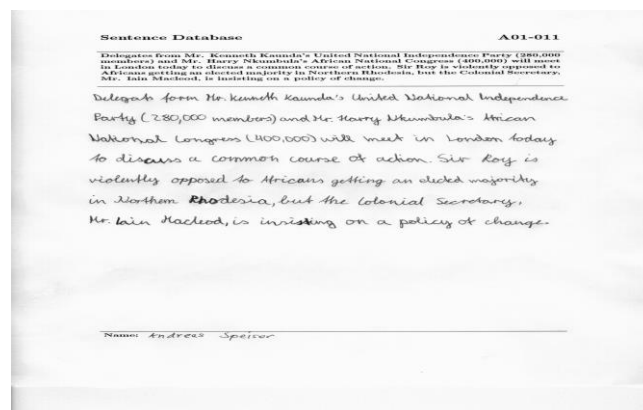 Sentence Database A01-011
Delegates from Mr. Kenneth Kaunda's United National Independence Party (280,000
members) and Mr. Harry Nkumbula's African National Congress (400,000) will meet
in London today to discuss a common course of action. Sir Roy is violently opposed to
Africans getting an elected majority in Northern Rhodesia, but the Colonial Secretary,
Mr. Iain Macleod, is insisting on a policy of change.
Delegats form Mr. Kenneth Kaunda's United National Independence
Party (280,000 members) and Mr. Harry Nkumbula's African
National Congress (400,000) will meet in London today
to discuss a common course of action. Sir Roy is
violently opposed to Africans getting an elected majority
in Northern Rhodesia, but the Colonial Secretary,
Mr. Iain Macleod, is insisting on a policy of change.
Name: Andreas Speiser